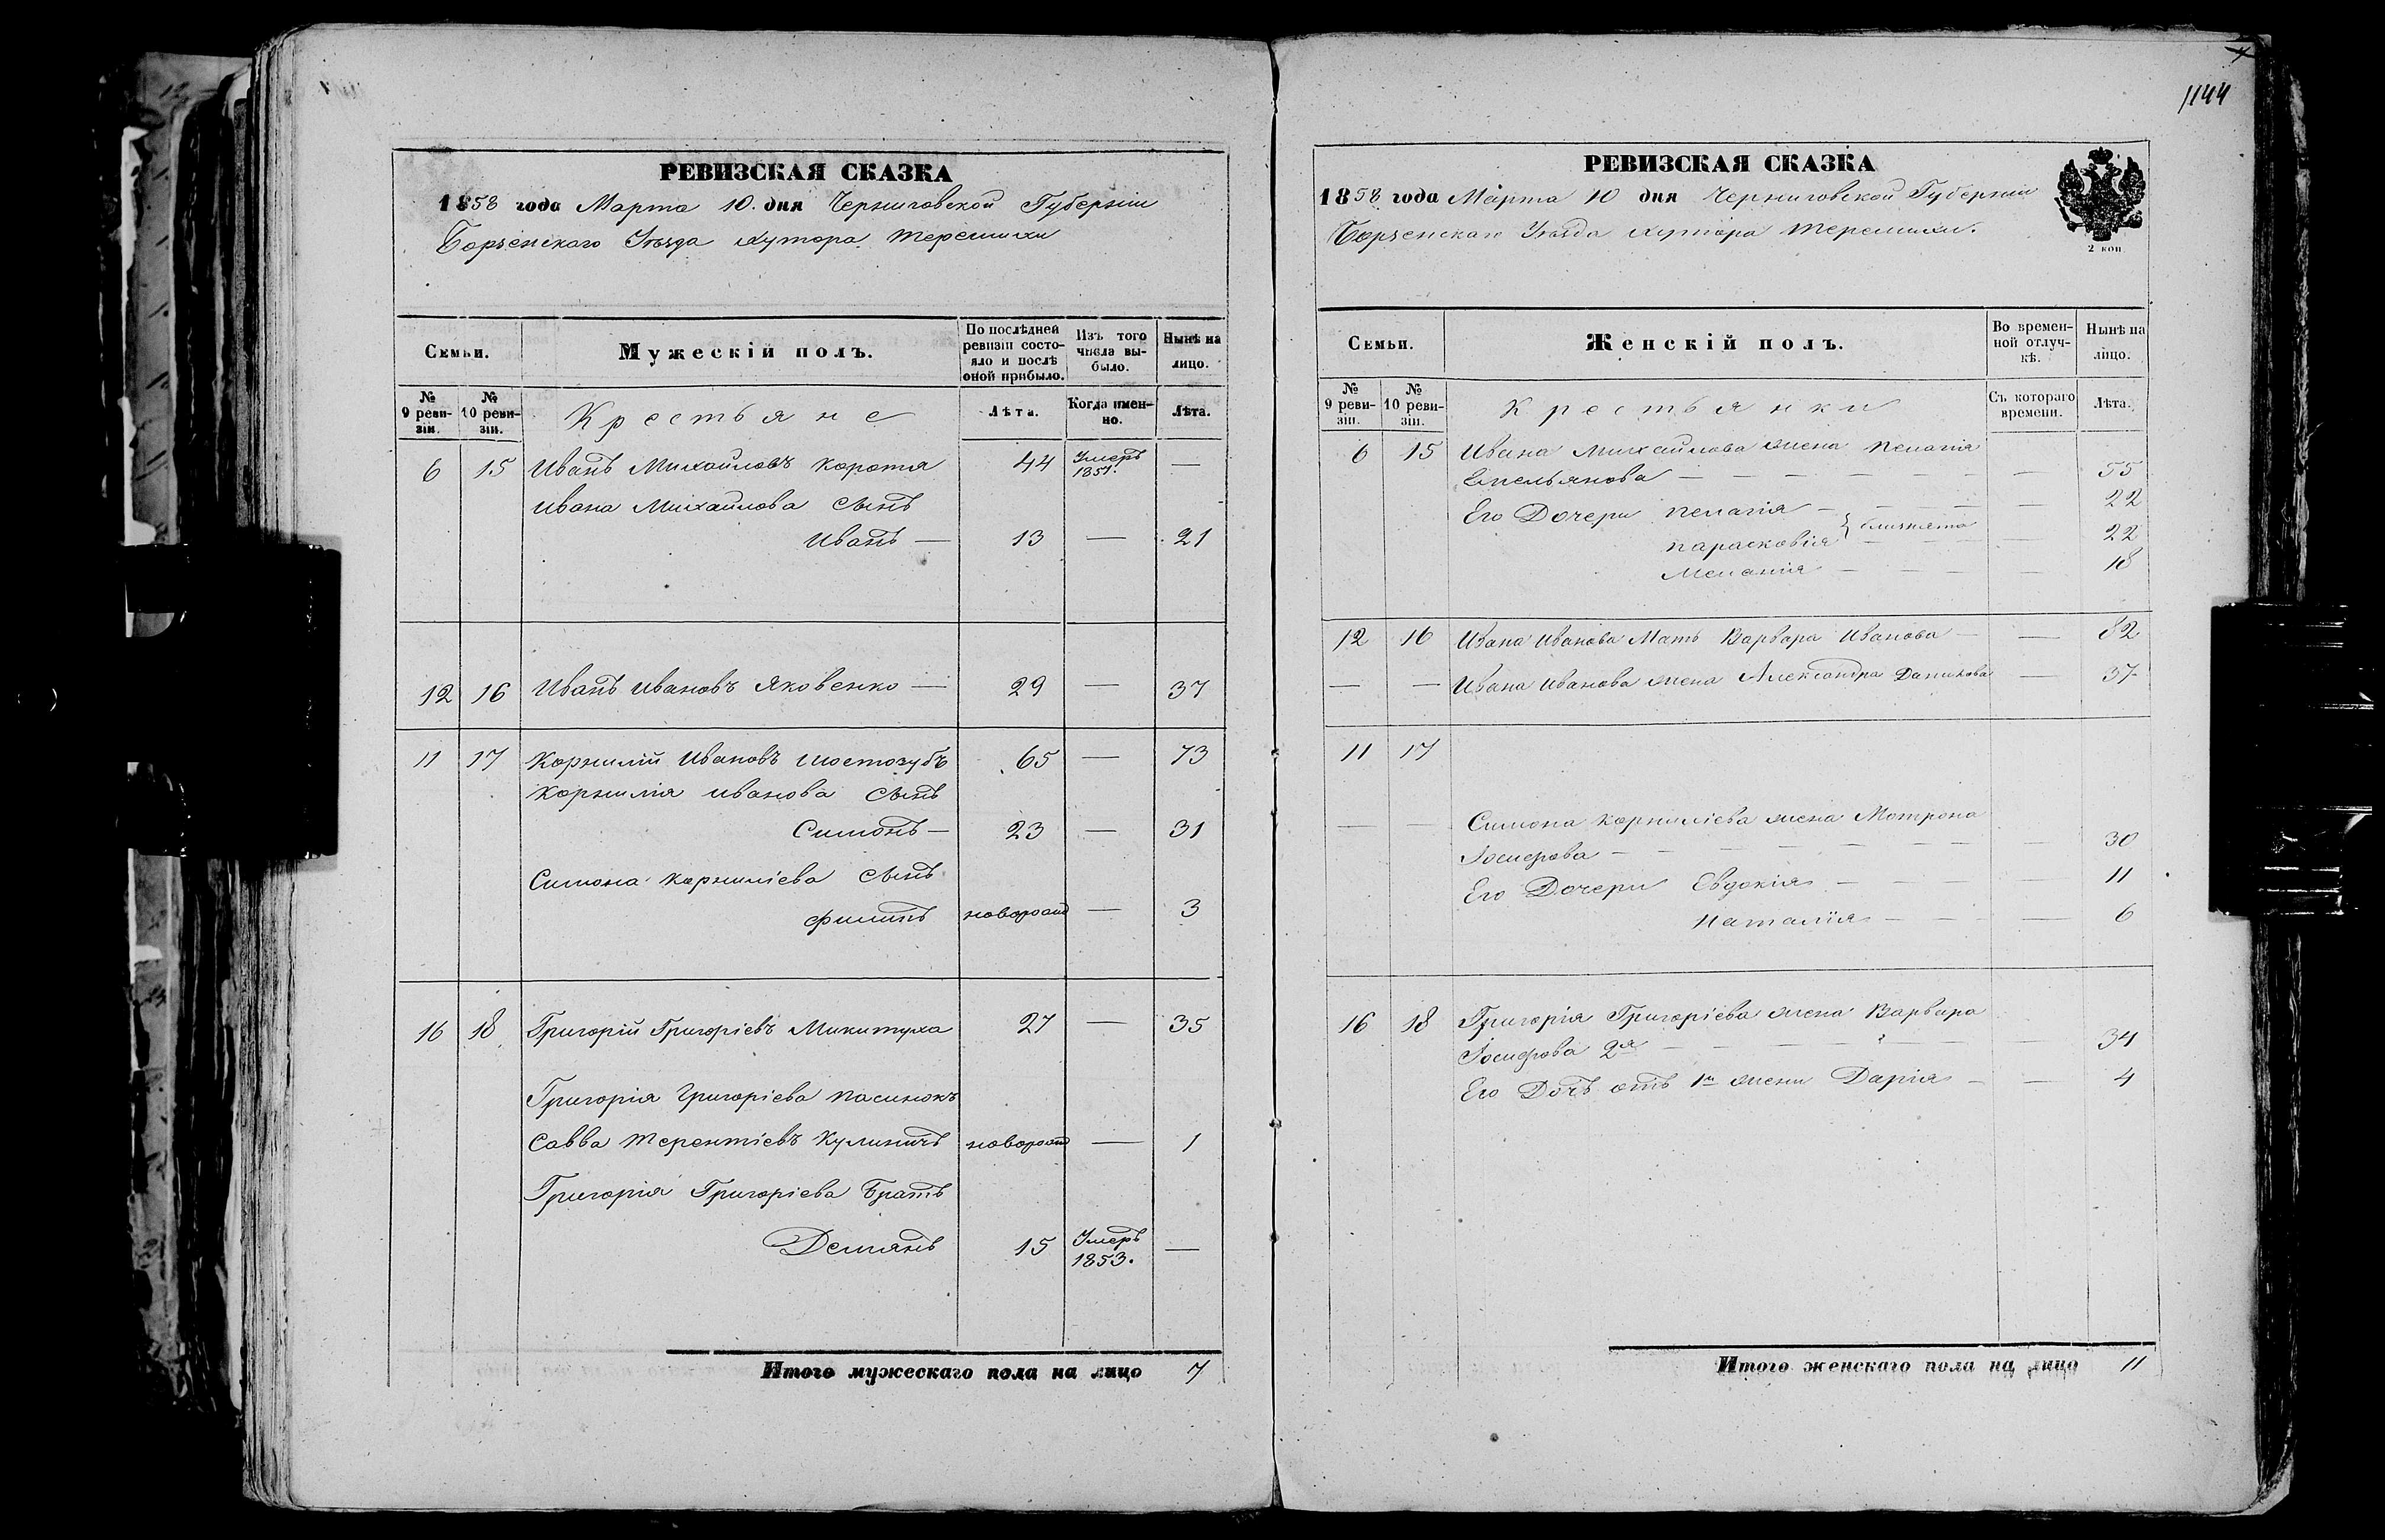 РЕВИЗСКАЯ СКАЗКА
1858 года Марта 10. дня Черниговской Губерніи
Борзенскаго Уѣзда хутора Терешихи
Семьи.
Мужескій полъ.
По послѣдней ревизіи состояло и послѣ оной прибыло.
Изъ того числа выбыло.
Нынѣ на лицо.
№ 9 ревизіи.
№ 10 ревизіи.
Крестьяне
Лѣта.
Когда именно.
Лѣта.
6 15 Иванъ Михайловъ Коротя 44 Умеръ 1851. —
Ивана Михайлова Сынъ
Иванъ — 13 — 21
12 16 Иванъ Ивановъ Яковенко — 29 — 37
11 17 Корнилій Ивановъ Шостозубъ 65 — 73
Корнилія Иванова Сынъ
Симонъ — 23 — 31
Симона Корниліева Сынъ
Филипъ новорожд — 3
16 18 Григорій Григоріевъ Микитуха 27 — 35
Григорія Григоріева пасинокъ
Савва Терентіевъ Кулиничъ новорожд — 1
Григорія Григоріева Братъ
Демянъ 15 Умеръ 1853. —
Итого мужескаго пола на лицо 7
1144
РЕВИЗСКАЯ СКАЗКА
1858 года Марта 10 дня Черниговской Губерніи
Борзенскаго Уѣзда хутора Терешихи.
2 коп
Семьи.
Женскій полъ.
Во временной отлучкѣ.
Нынѣ на лицо.
№ 9 ревизіи.
№ 10 ревизіи.
Крестьянки
Съ котораго времени.
Лѣта.
6 15 Ивана Михайлова жена Пелагія
Емельянова — — 55
Его Дочери Пелагія — — 22
Парасковія } близнята — 22
Меланія — — 18
12 16 Ивана Иванова Мать Варвара Иванова — — 82
— — Ивана Иванова жена Александра Данилова — 37
11 17
— — Симона Корниліева жена Мотрона
Іосифова — — 30
Его Дочери Евдокія — — 11
Наталія — — 6
16 18 Григорія Григоріева жена Варвара
Іосифова 2я — — 34
Его Дочь отъ 1й жены Дарія — — 4
Итого женскаго пола на лицо 11